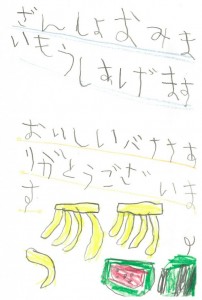 ざんしょおみま
いもうしあげます
おいしいバナナあ
りがとうござ いま
す